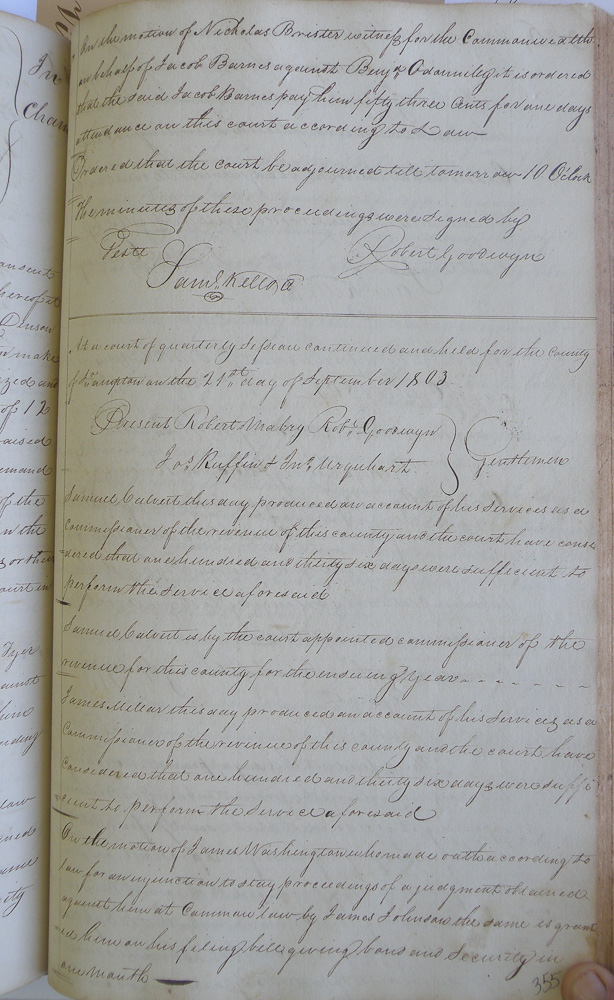 On the motion of Nicholas Brister witness for the Commonwealth
on behalf of Jacob Barnes against Benja Odannilley it is ordered
that the said Jacob Barnes pay him fifty three Cents for one days
attendance on this court according to Law
Ordered that the court be adjourned till tomorrow 10 OClock
The minutes of these proceedings were Signed by
Teste
Robert Goodwyn
Saml. Kello
At a court of quarterly Session continued and held for the County
of So.ampton on the 21st day of September 1803
Present Robert Mabry Robt. Goodwyn
Gentlemen
Jos. Ruffin & Jno. Urquhart
Samuel Calvert this day produced an account of his Services as a
Commissioner of the revenue of this county and the court have consi
dered that one hundred and thirty six days were sufficient to
perform the Service aforesaid
Samuel Calvert is by the court appointed commissioner of the
revenue for this county for the ensuing Year
James Millar this day produced an account of his Services as a
Commissioner of the revenue of this county and the court have
Considered that one hundred and thirty six days were suffi
cient to perform the Service aforesaid
On the motion of James Washington who made oath according to
law for an injunction to stay proceedings of a judgment obtained
against him at Common law by James Johnson the same is grant
ed him on his filing bill & giving bond and Security in
one month
355
In
Cham
ansent
hereof it
Denson
make
ized and
of 12
raised
emand
of the
in the
or their
ourt in
Tyer
ainst
him
nding
law
ined
ame
ity